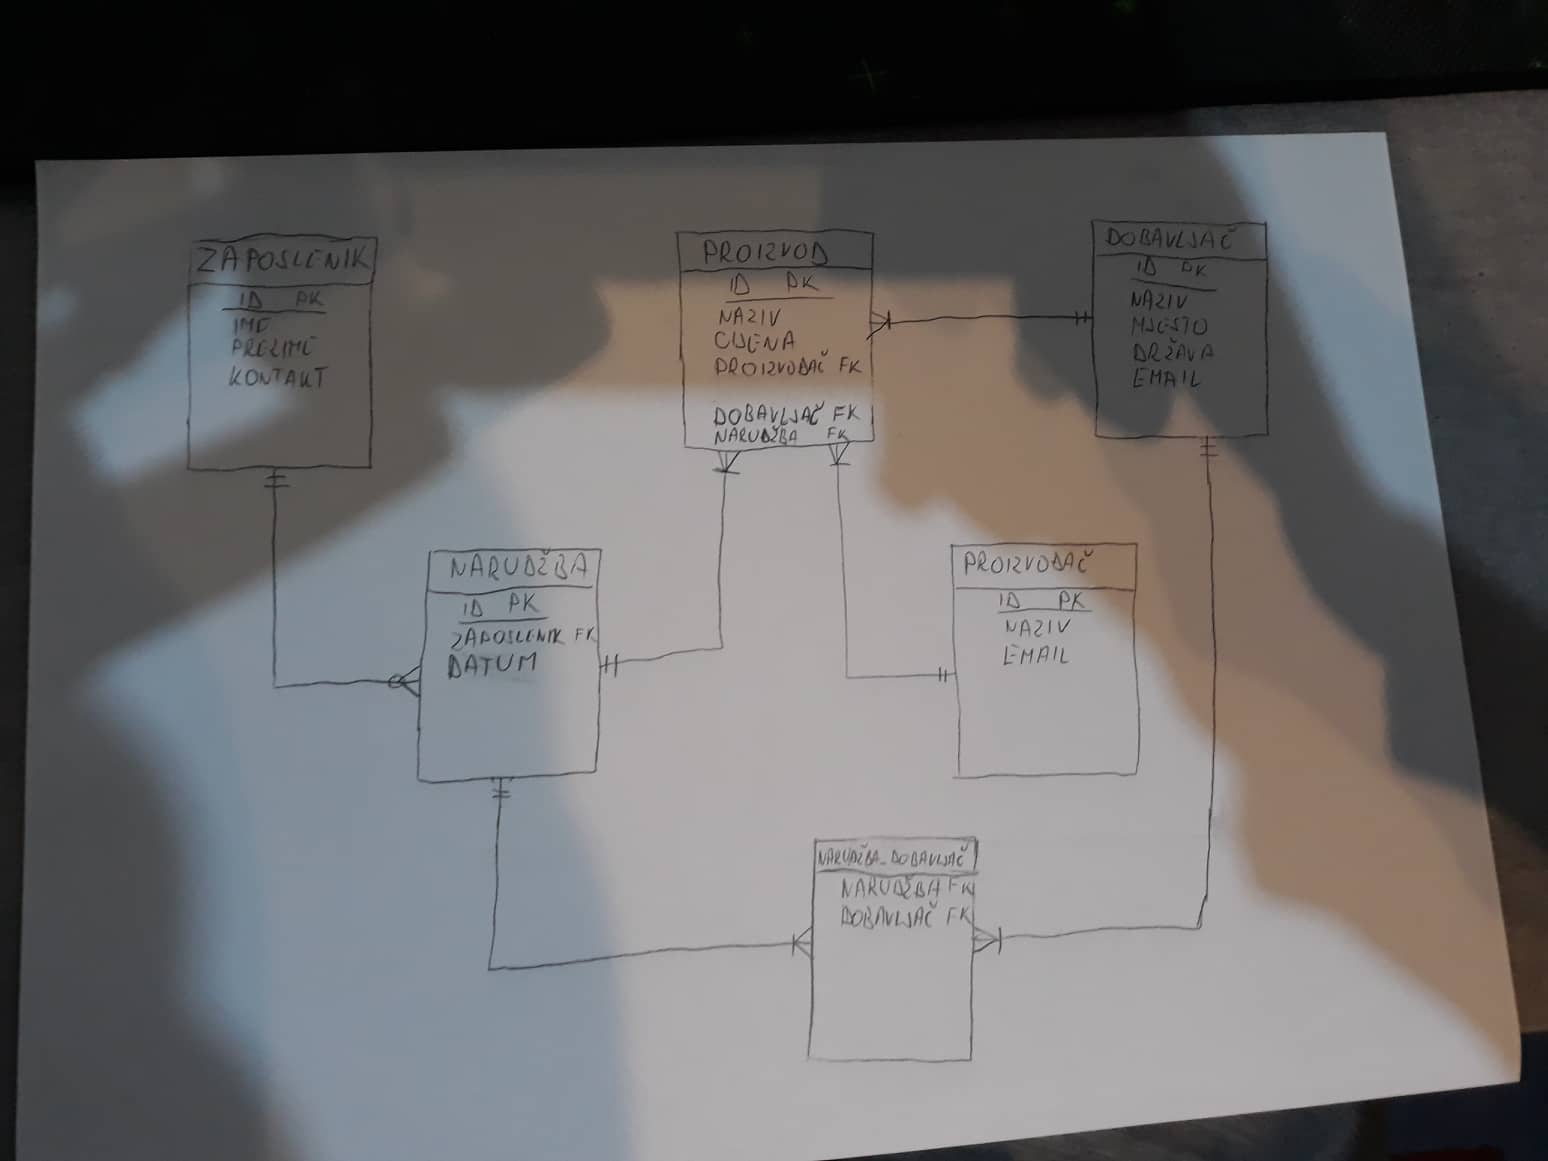 ZAPOSLENIK
ID PK
IME
PREZIME
KONTAKT
PROIZVOD
ID PK
NAZIV
CIJENA
PROIZVOĐAČ FK
DOBAVLJAČ FK
NARUDŽBA FK
DOBAVLJAČ
ID PK
NAZIV
MJESTO
DRŽAVA
EMAIL
NARUDŽBA
ID PK
ZAPOSLENIK FK
DATUM
PROIZVOĐAČ
ID PK
NAZIV
EMAIL
NARUDŽBA_DOBAVLJAČ
NARUDŽBA FK
DOBAVLJAČ FK